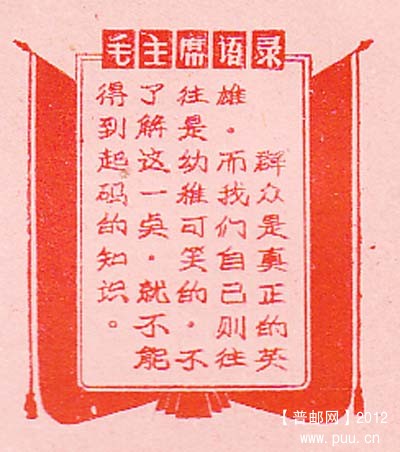 毛主席语录
群众是真正的英
雄。而我们自己则往
往是幼稚可笑的，不
了解这一奌，就不能
得到起码的知识。
【普邮网】2012
www.puu.cn